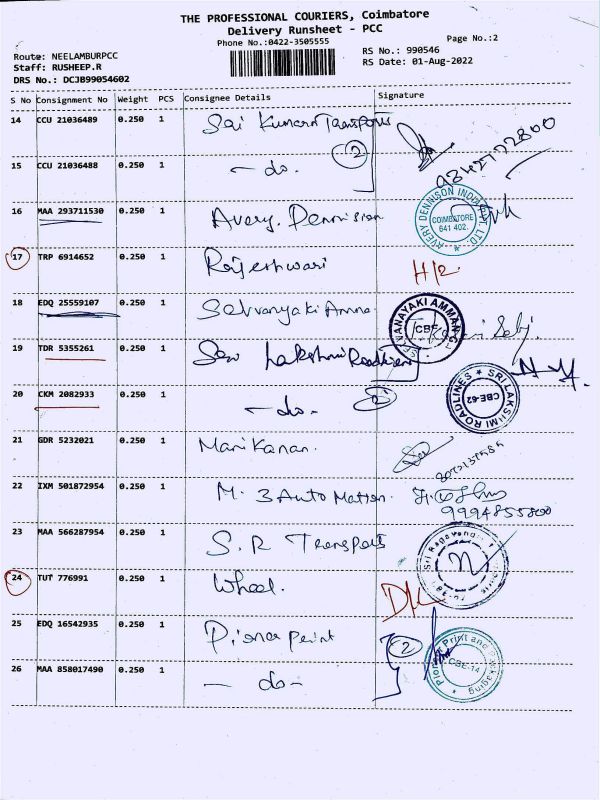 THE PROFESSIONAL COURIERS, Coimbatore
Delivery Runsheet - PCC
Phone No.:0422-3505555
Page No.:2
Route: NEELAMBURPCC
RS No.: 990546
Staff: RUSHEEP.R
RS Date: 01-Aug-2022
DRS No.: DC3B99054602
S No Consignment No Weight PCS Consignee Details Signature
14 CCU 21036489 0.250 1 Sai Kumaran Transports
2
15 CCU 21036488 0.250 1 - do.
16 MAA 293711530 0.250 1 Avery. Dennision
AVERY DENNISON INDIA PVT. LTD.
COIMBATORE
641 402.
17 TRP 6914652 0.250 1 Rajeshwari H/2
18 EDQ 25559107 0.250 1 Selvanyaki Amma
CBE
19 TDR 5355261 0.250 1 Lakshmi Roadlines
20 CKM 2082933 0.250 1 - do - 2
SRI LAKSHMI ROADLINES
CBE-62
21 GDR 5232021 0.250 1 Mani Kanan.
22 IXM 501872954 0.250 1 M. 3 Auto Matton.
9994855800
23 MAA 566287954 0.250 1 S. R Transports
24 TUT 776991 0.250 1 Wheel. D/L
25 EDQ 16542935 0.250 1 Pioner Print 2
Pioneer Print and Packaging
CBE-14
26 MAA 858017490 0.250 1 - do -